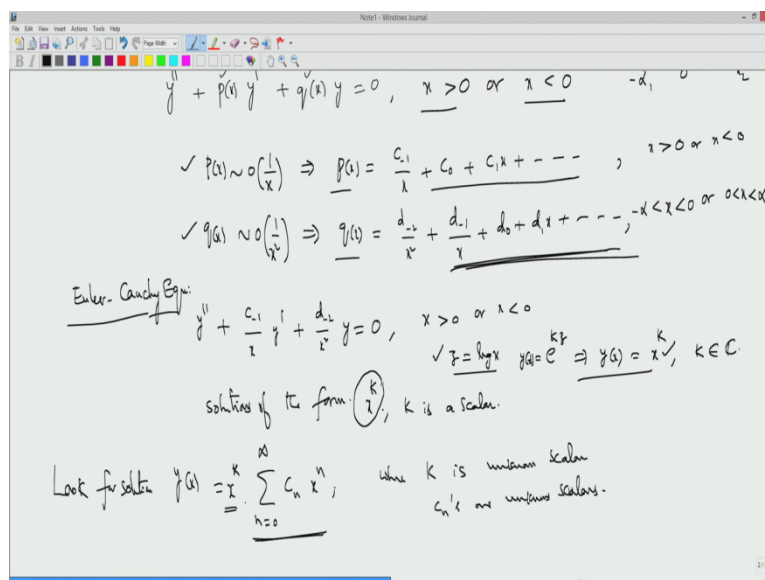 Note1 - Windows Journal
File Edit View Insert Actions Tools Help
Page Width
B I
y'' + p(x) y' + q(x) y = 0, x > 0 or x < 0 -α₁ 0 α₂
✓ p(x) ~ O(1/x) ⇒ p(x) = c₋₁/x + c₀ + c₁x + ----, x > 0 or x < 0
✓ q(x) ~ O(1/x²) ⇒ q(x) = d₋₂/x² + d₋₁/x + d₀ + d₁x + ----, -α < x < 0 or 0 < x < α
Euler-Cauchy Equn:
y'' + c₋₁/x y' + d₋₂/x² y = 0, x > 0 or x < 0
✓ z = log x y(z) = e^{kz} ⇒ y(x) = x^k ✓, k ∈ ℂ.
solutions of the form x^k, k is a scalar.
Look for solution y(x) = x^k . ∑_{n=0}^{∞} cₙ xⁿ, where k is unknown scalar
cₙ's are unknown scalars.